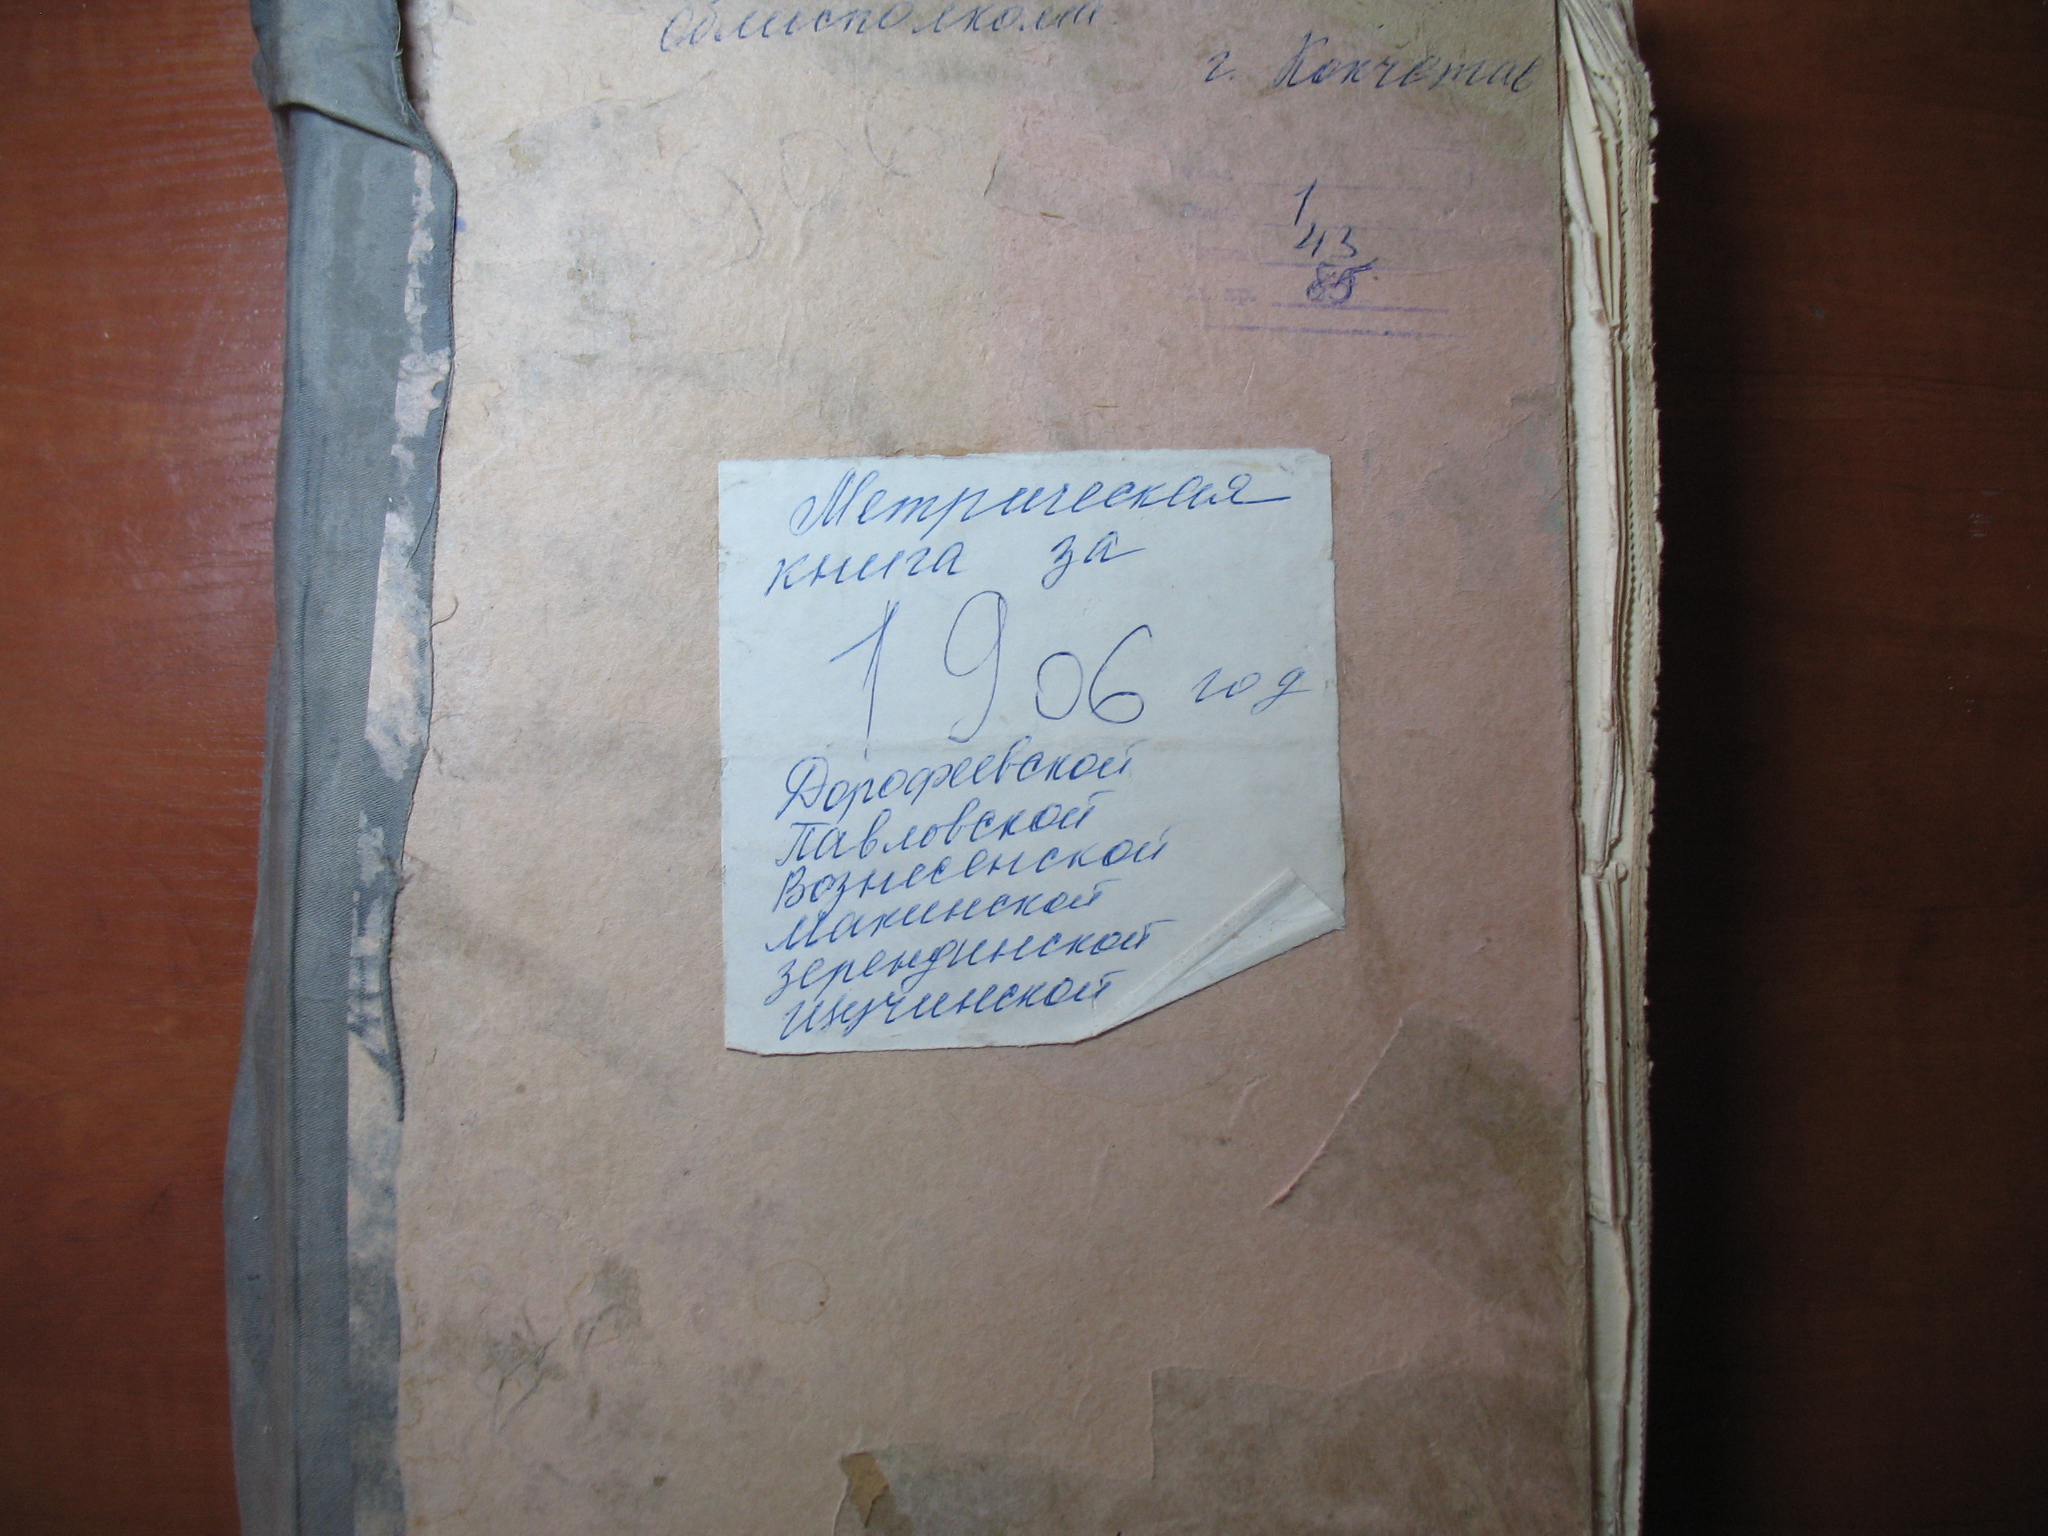 Облисполкома
г. Кокчетав
1
43
85
Метрическая
книга за
1906 год
Дорофеевской
Павловской
Вознесенской
Макинской
зерендинской
щучинской